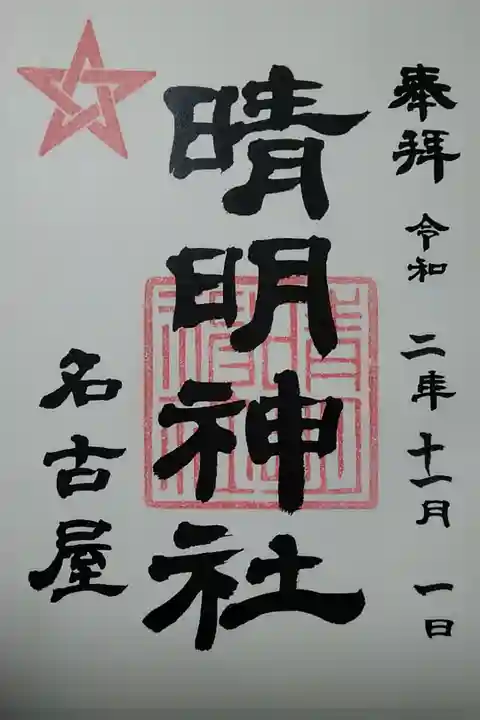 奉拝 令和 二年 十一月 一日
晴明神社
名古屋